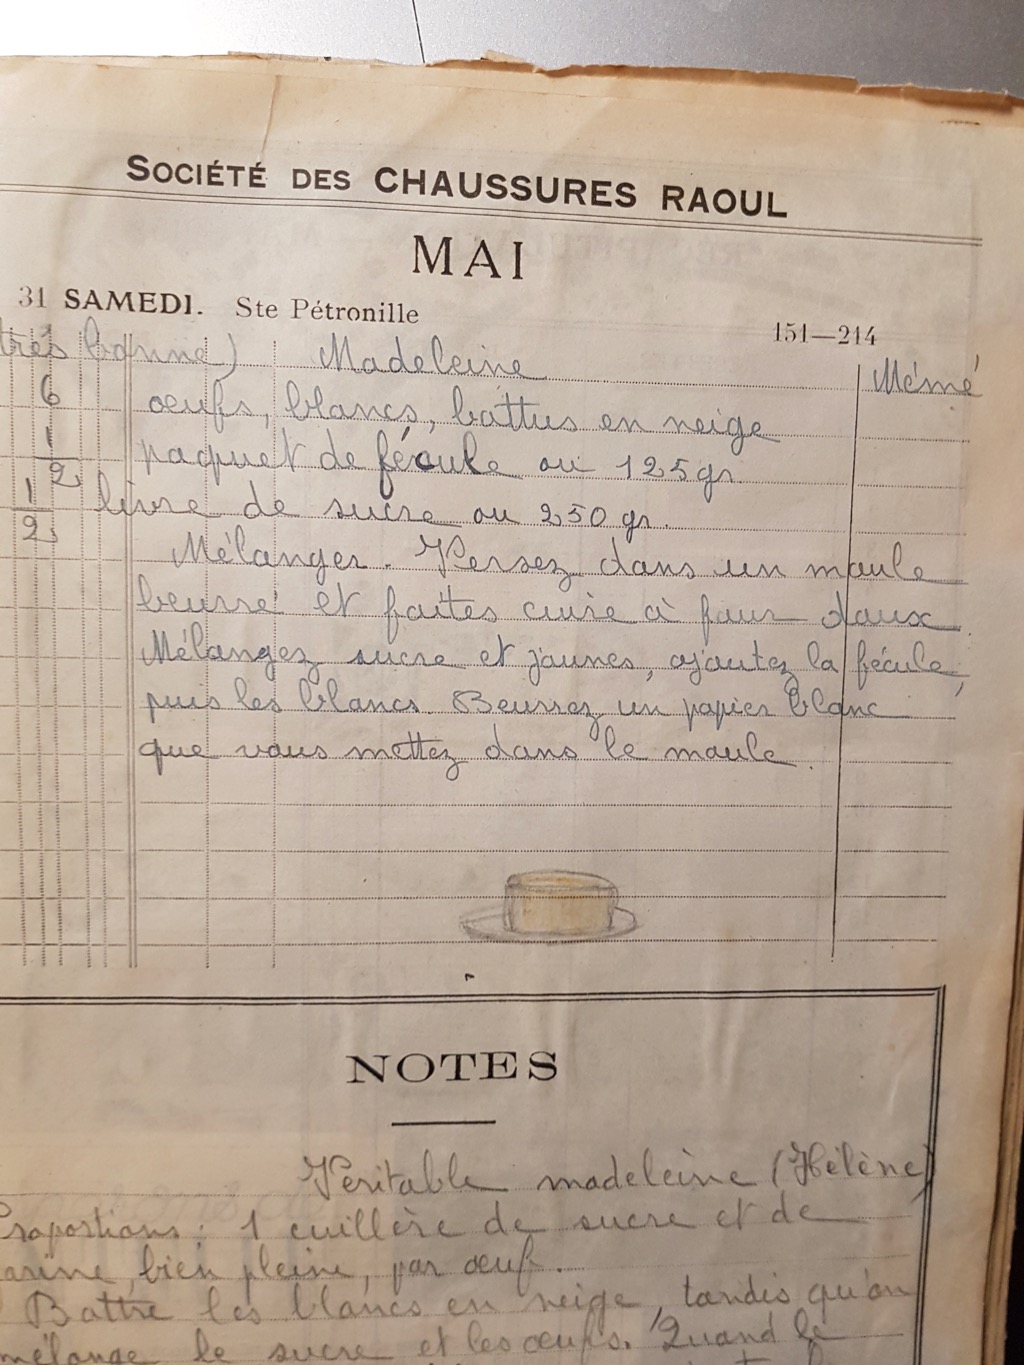 SOCIÉTÉ DES CHAUSSURES RAOUL
MAI
31 SAMEDI. Ste Pétronille
151—214
très bonne) Madeleine Mémé
6 oeufs, blancs, battus en neige
1/2 paquet de fécule ou 125 gr
1/2 livre de sucre ou 250 gr.
Mélanger. Versez dans un moule
beurré et faites cuire à four doux.
Mélangez sucre et jaunes, ajoutez la fécule,
puis les blancs. Beurrez un papier blanc
que vous mettez dans le moule.
NOTES
Véritable madeleine (Hélène)
Proportions : 1 cuillère de sucre et de
arine, bien pleine, par oeuf.
Battre les blancs en neige, tandis qu'on
mélange le sucre et les oeufs. Quand le